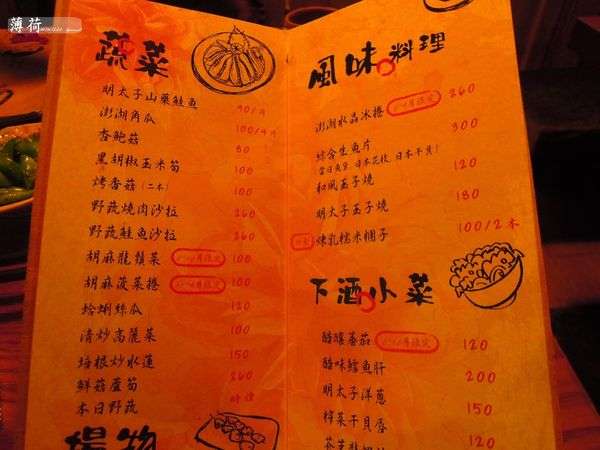 薄荷
蔬菜
明太子山藥鮭魚 90/片
澎湖角瓜 100/4片
杏鮑菇 80
黑胡椒玉米筍 100
烤香菇(二本) 100
野蔬燒肉沙拉 260
野蔬鮭魚沙拉 260
胡麻龍鬚菜 100
胡麻菠菜捲 100
蛤蜊絲瓜 120
清炒高麗菜 100
培根炒水蓮 150
鮮菇蘆筍 260
本日野蔬 時價
揚物
風味料理
澎湖水晶冰捲 260
綜合生魚片 300
當日魚穿、日本花枝、日本干貝
和風玉子燒 120
明太子玉子燒 180
煉乳糯米糰子 100/2本
下酒小菜
醋釀蕃茄 120
醋味鱈魚肝 200
明太子洋蔥 150
榨菜干貝唇 120